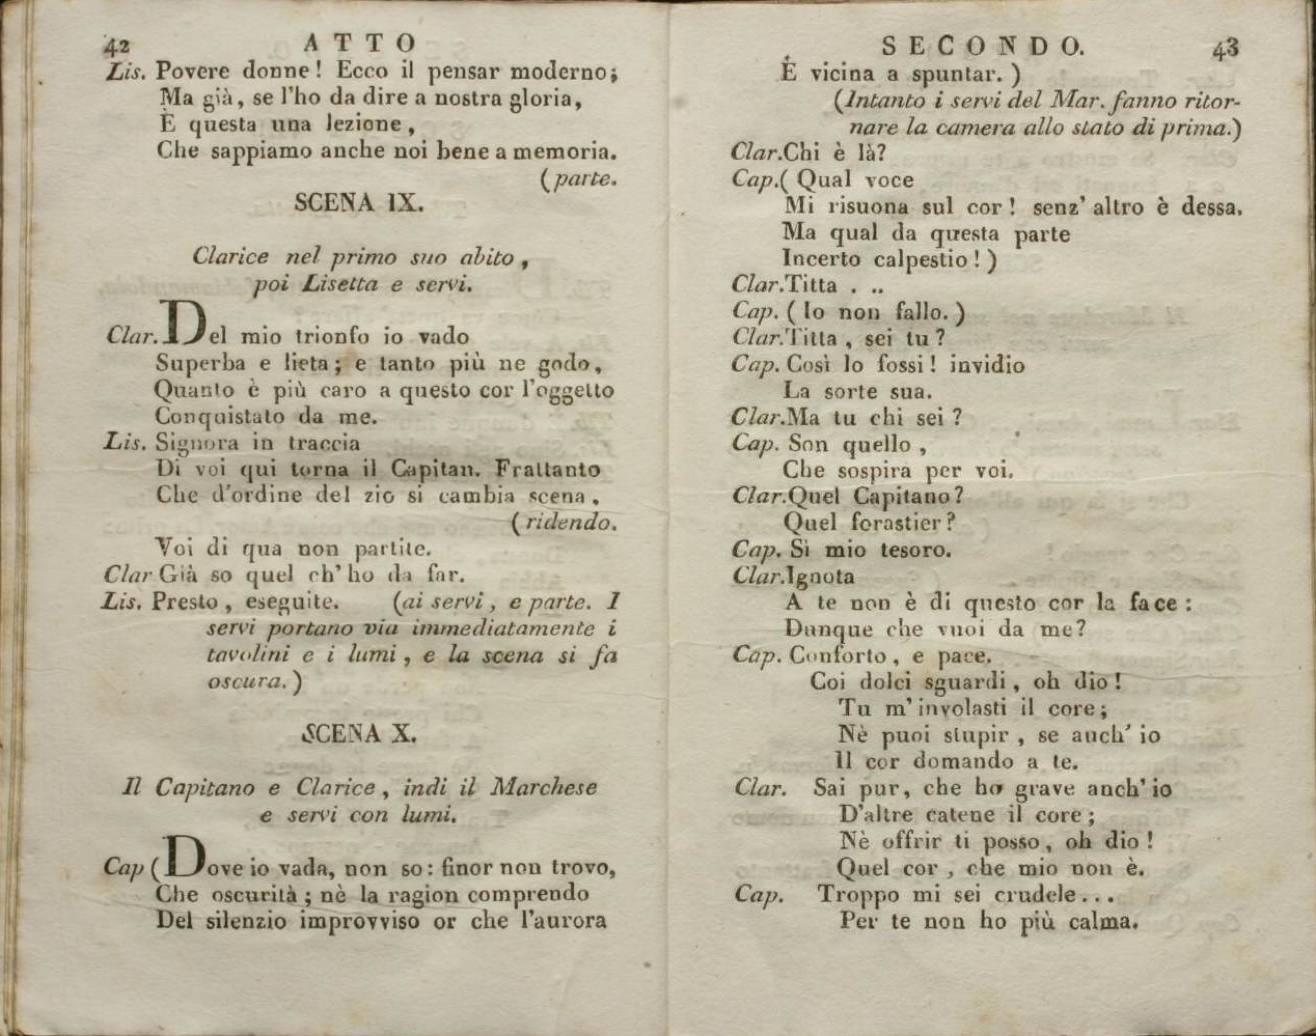 42 ATTO
Lis. Povere donne! Ecco il pensar moderno;
Ma già, se l'ho da dire a nostra gloria,
È questa una lezione,
Che sappiamo anche noi bene a memoria.
(parte.
SCENA IX.
Clarice nel primo suo abito,
poi Lisetta e servi.
Clar. Del mio trionfo io vado
Superba e lieta; e tanto più ne godo,
Quanto è più caro a questo cor l'oggetto
Conquistato da me.
Lis. Signora in traccia
Di voi qui torna il Capitan. Frattanto
Che d'ordine del zio si cambia scena,
(ridendo.
Voi di qua non partite.
Clar Già so quel ch'ho da far.
Lis. Presto, eseguite. (ai servi, e parte. I
servi portano via immediatamente i
tavolini e i lumi, e la scena si fa
oscura.)
SCENA X.
Il Capitano e Clarice, indi il Marchese
e servi con lumi.
Cap (Dove io vada, non so: finor non trovo,
Che oscurità; nè la ragion comprendo
Del silenzio improvviso or che l'aurora
SECONDO. 43
È vicina a spuntar.)
(Intanto i servi del Mar. fanno ritor-
nare la camera allo stato di prima.)
Clar. Chi è là?
Cap. (Qual voce
Mi risuona sul cor! senz'altro è dessa.
Ma qual da questa parte
Incerto calpestio!)
Clar. Titta . ..
Cap. (Io non fallo.)
Clar. Titta, sei tu?
Cap. Così lo fossi! invidio
La sorte sua.
Clar. Ma tu chi sei?
Cap. Son quello,
Che sospira per voi.
Clar. Quel Capitano?
Quel forastier?
Cap. Si mio tesoro.
Clar. Ignota
A te non è di questo cor la face:
Dunque che vuoi da me?
Cap. Conforto, e pace.
Coi dolci sguardi, oh dio!
Tu m'involasti il core;
Nè puoi stupir, se anch'io
Il cor domando a te.
Clar. Sai pur, che ho grave anch'io
D'altre catene il core;
Nè offrir ti posso, oh dio!
Quel cor, che mio non è.
Cap. Troppo mi sei crudele...
Per te non ho più calma.